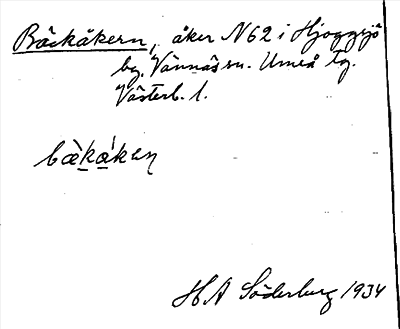 Bäckåkern, åker N62 i Hjoggsjö
by. Vännäs sn. Umeå tg.
Västerb. l.
bæ̀kákən
H A Söderberg 1934